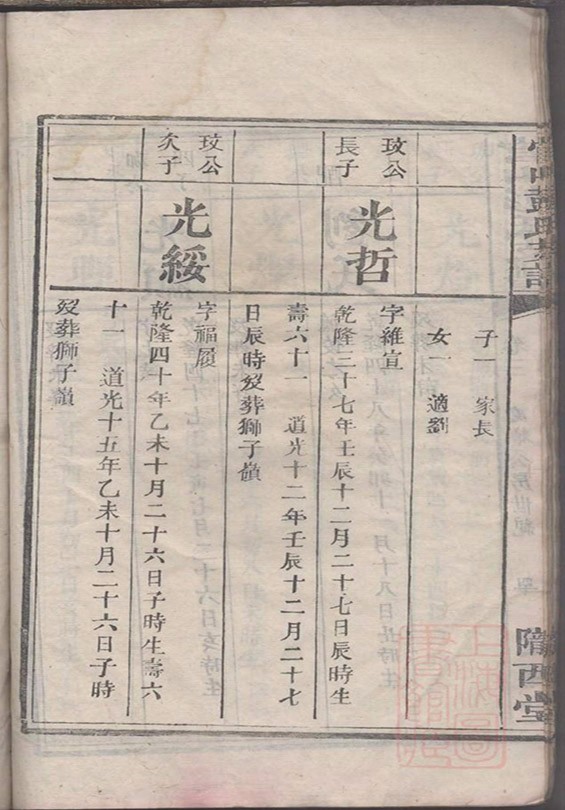 彭氏宗譜
隴西堂
子一 家長
女一 適劉
玫公
長子
光哲
字維宣
乾隆三十七年壬辰十二月二十七日辰時生
壽六十一 道光十二年壬辰十二月二十七
日辰時歿葬獅子嶺
玫公
次子
光綏
字福履
乾隆四十年乙未十月二十六日子時生壽六
十一 道光十五年乙未十月二十六日子時
歿葬獅子嶺